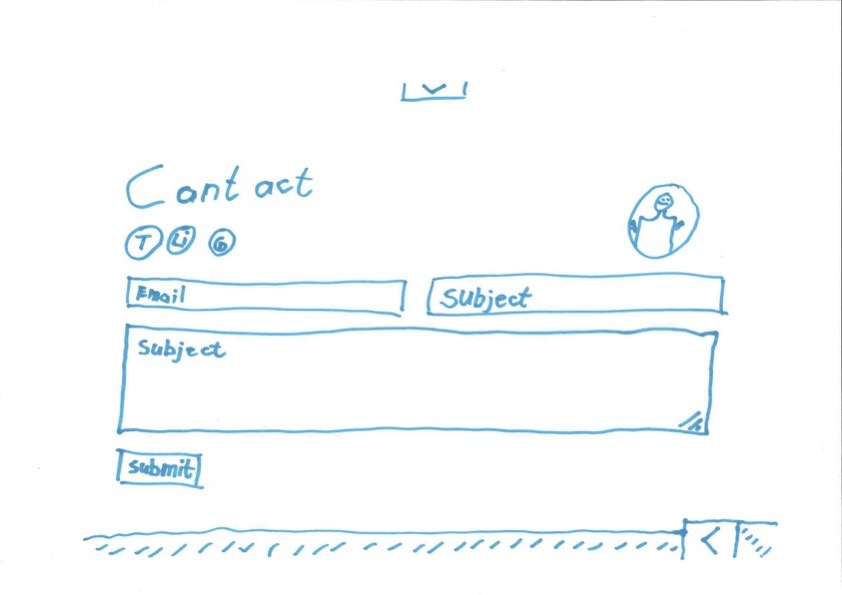 Contact
T Li G
Email Subject
Subject
submit